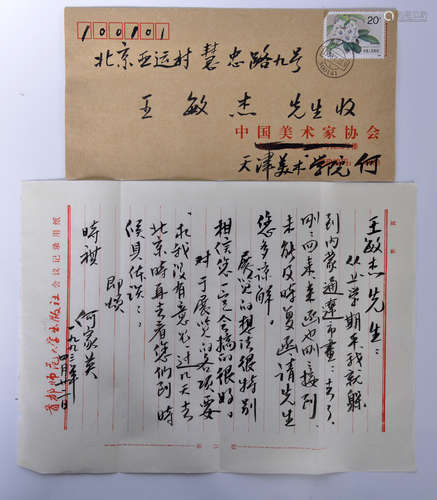 100101
20
北京亚运村慧忠路九号
王敏杰先生收
中国美术家协会
天津美术学院 何
王敏杰先生：
从上学期末我就躲
到内蒙通辽市画去了，
刚回来，来函也刚接到，
未能及时复函，请先生
您多谅解。
展览的想法很特别
相信您一定会搞的很好。
对于展览的各项要
求我没有意见，过几天去
北京时再去看您们，到时
候具体谈：
即颂
时祺
何家英
一九九三年
首都师范大学出版社会议记录用纸